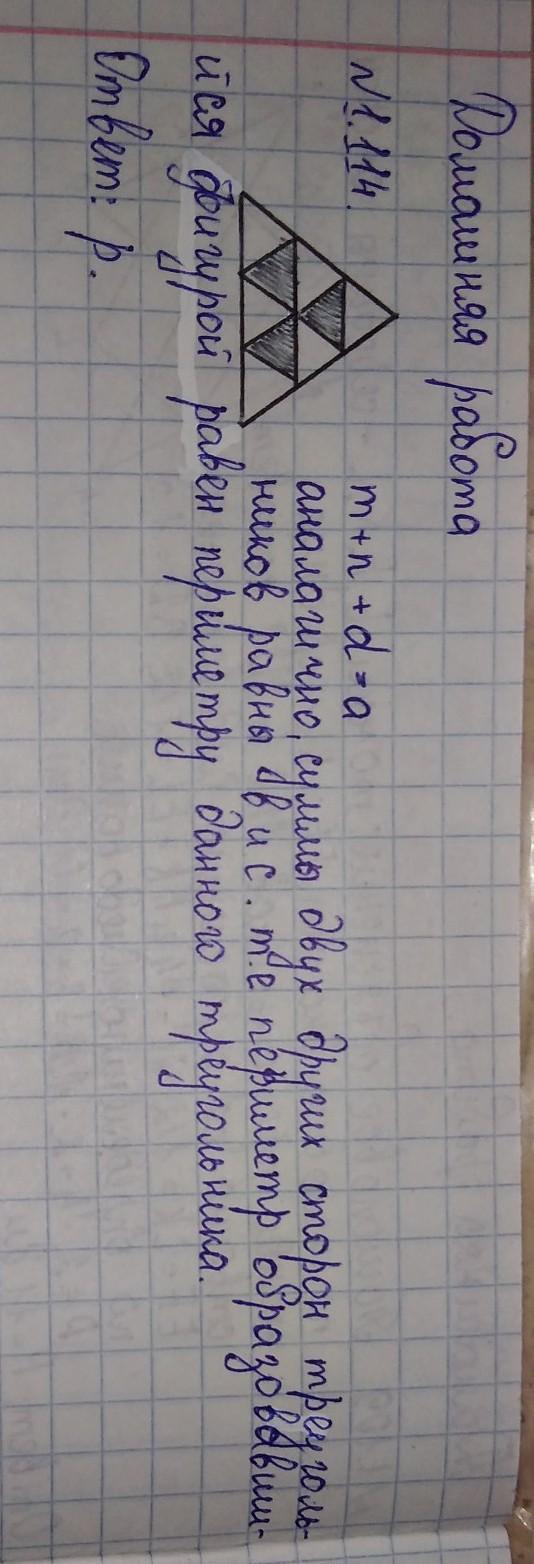 Домашняя работа
№1.114.
m + n + d = a
аналагично, суммы двух других сторон треуголь-
ников равны в и с. т.е периметр образовавши-
йся фигурой равен периметру данного треугольника.
Ответ: р.